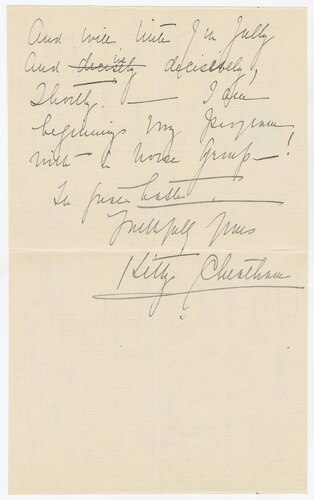 And will write you fully
and decisely decisively,
shortly. — I am
beginning my program
with a Norse Group —!
In great haste,
Faithfully yours
Kitty Cheatham